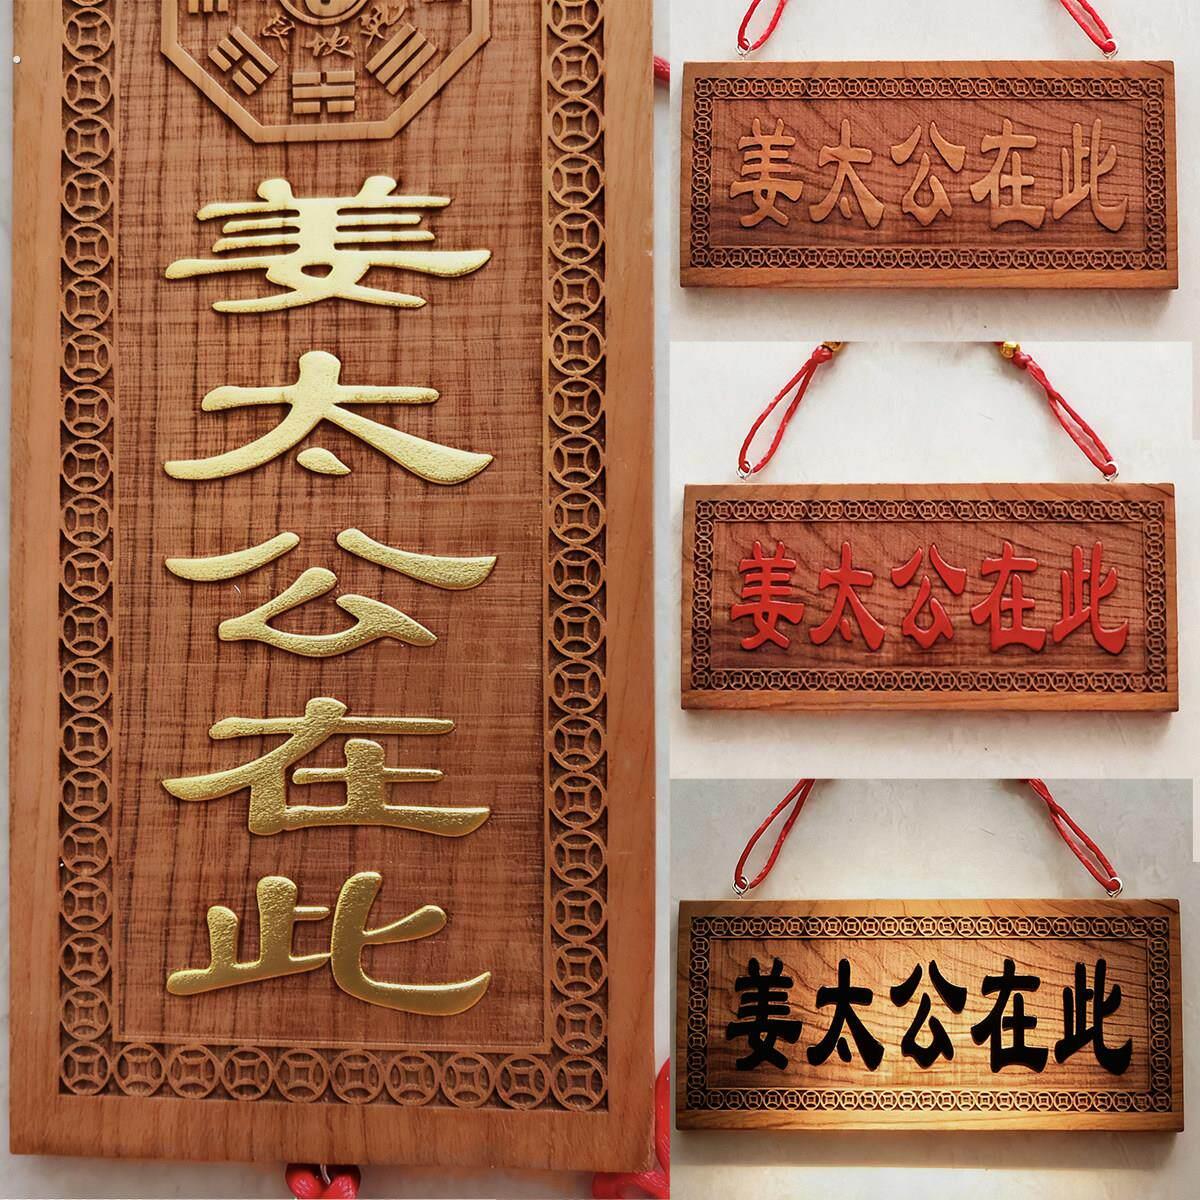 姜太公在此
姜太公在此
姜太公在此
姜太公在此